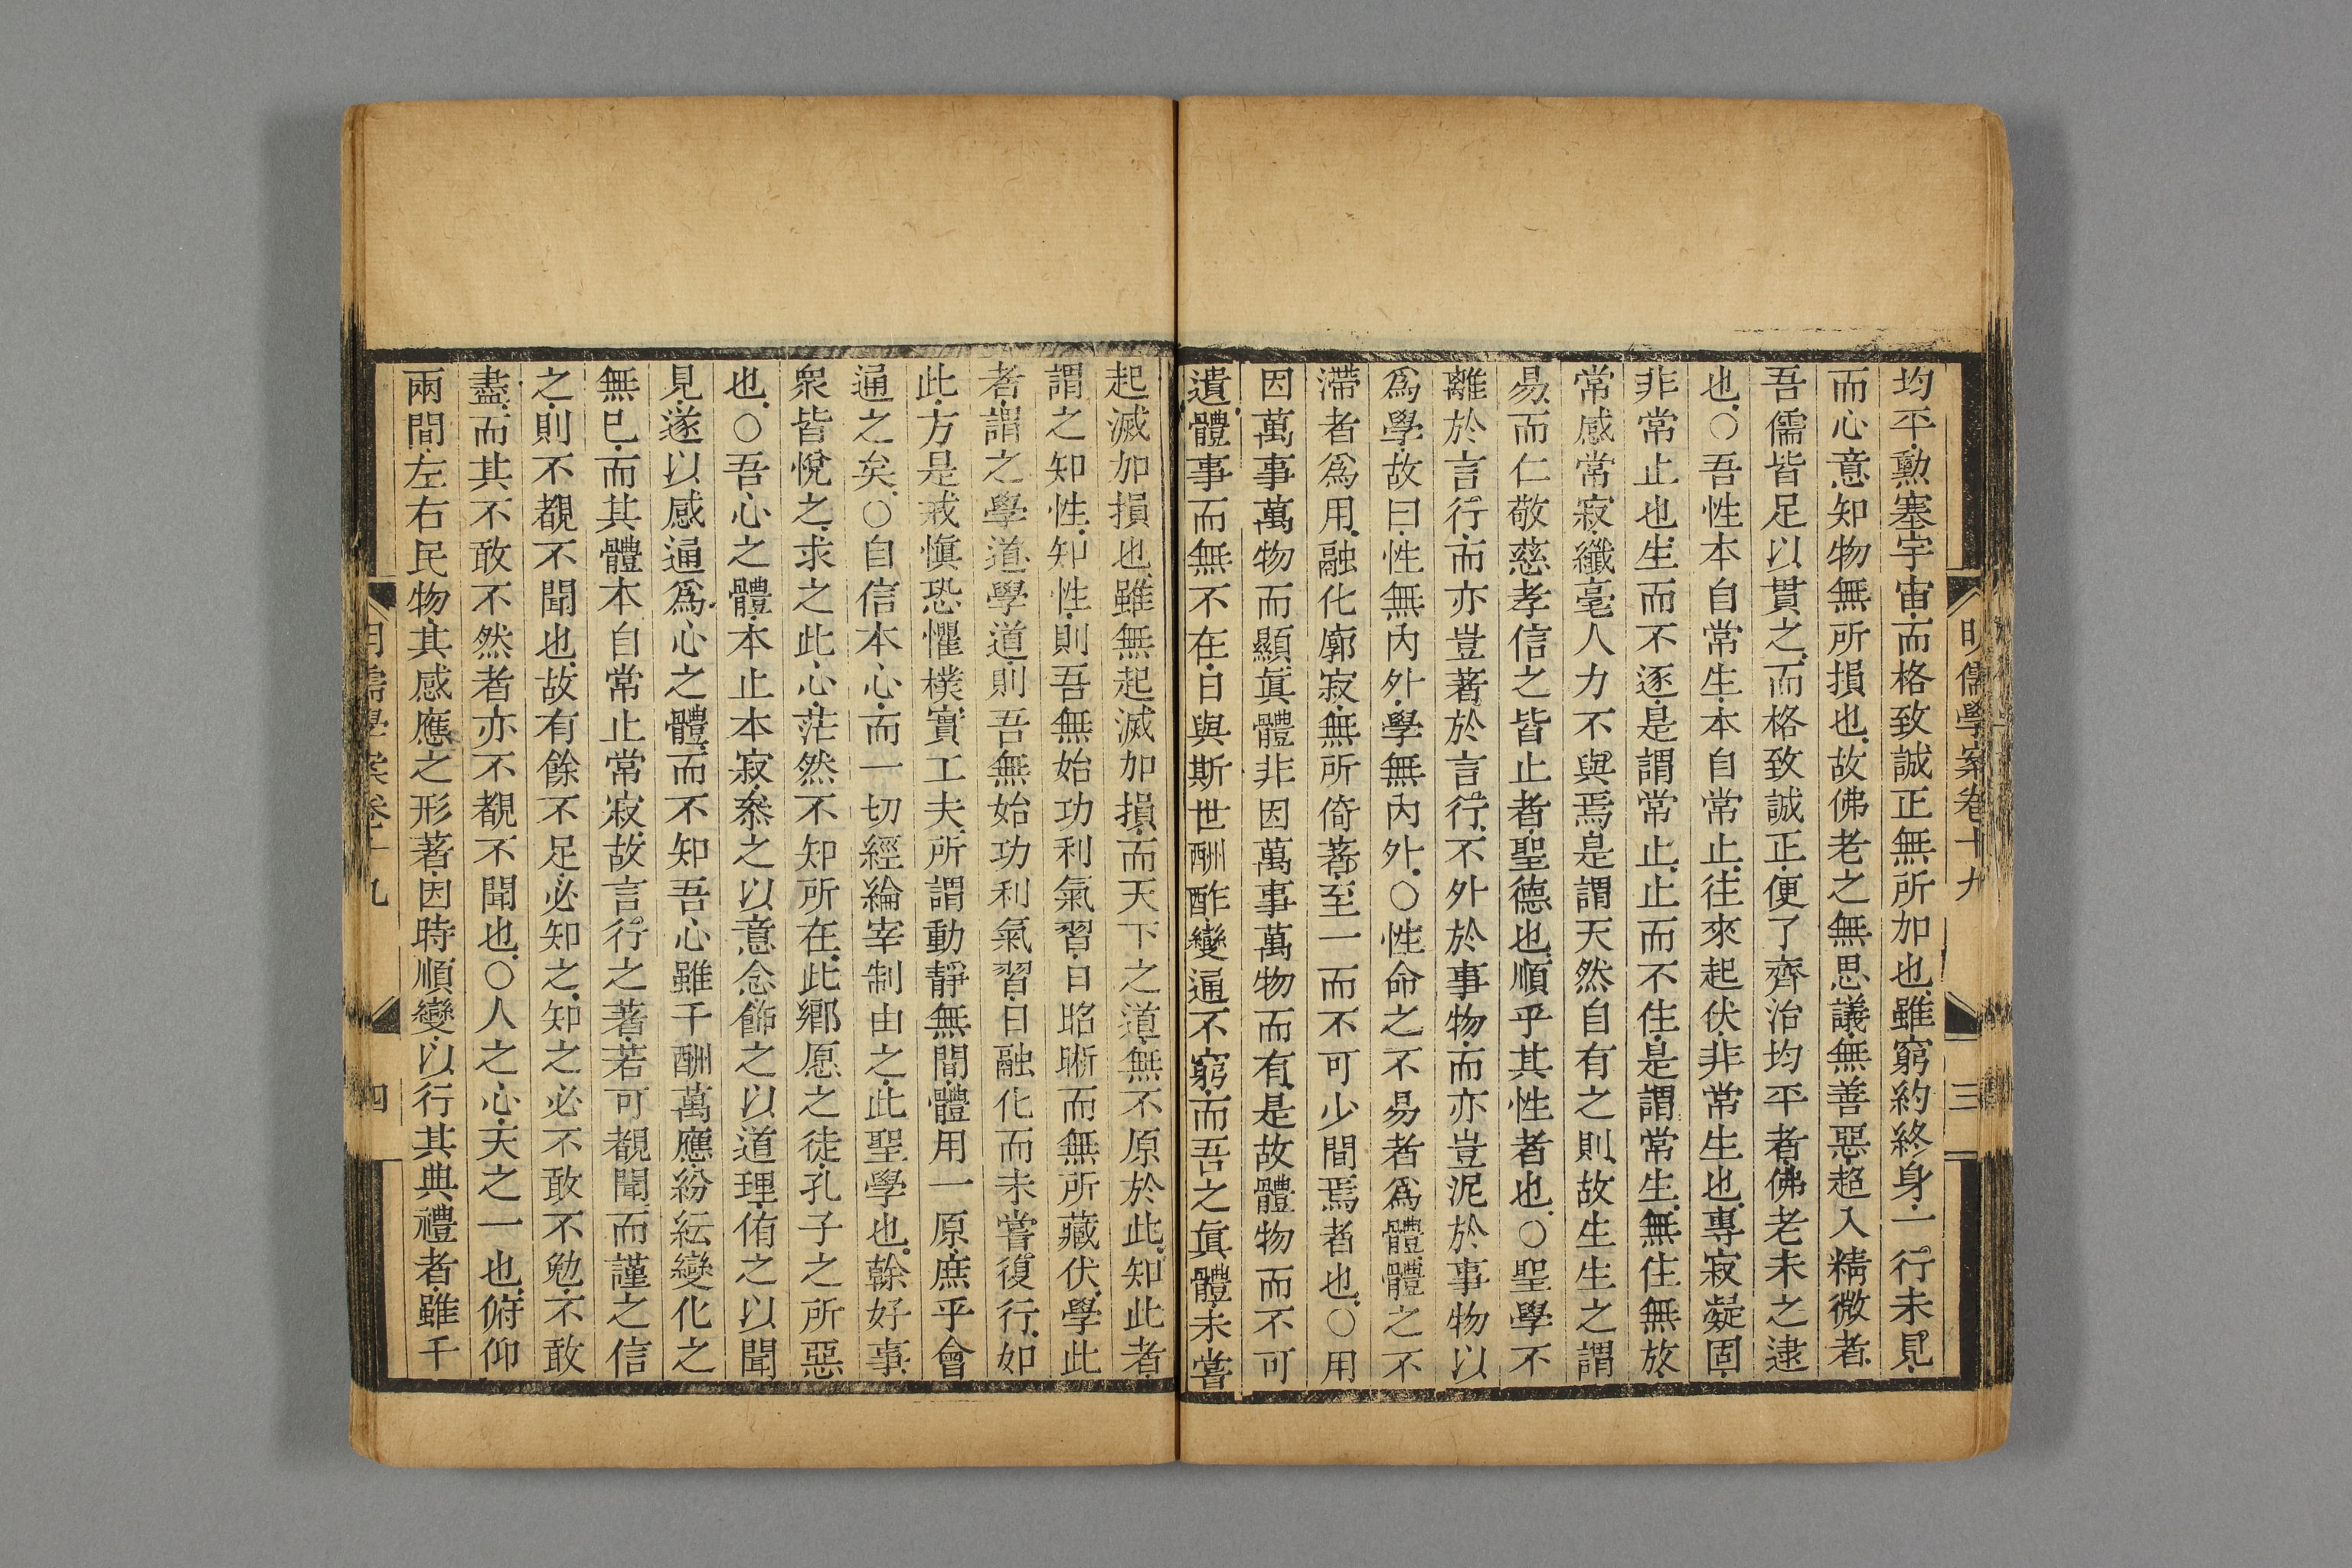 明儒學案卷十九 三
均平勳塞宇宙而格致誠正無所加也雖窮約終身一行未見
而心意知物無所損也故佛老之無思議無善惡超入精微者
吾儒皆足以貫之而格致誠正便了齊治均平者佛老未之逮
也○吾性本自常生本自常止往來起伏非常生也專寂凝固
非常止也生而不逐是謂常止止而不住是謂常生無住無放
常感常寂纖毫人力不與焉是謂天然自有之則故生生之謂
易而仁敬慈孝信之皆止者聖德也順乎其性者也○聖學不
離於言行而亦豈著於言行不外於事物而亦豈泥於事物以
爲學故曰性無內外學無內外○性命之不易者爲體體之不
滯者爲用融化廓寂無所倚著至一而不可少間焉者也○用
因萬事萬物而顯眞體非因萬事萬物而有是故體物而不可
遺體事而無不在日與斯世酬酢變通不窮而吾之眞體未嘗
起滅加損也雖無起滅加損而天下之道無不原於此知此者
謂之知性知性則吾無始功利氣習日昭晰而無所藏伏學此
者謂之學道學道則吾無始功利氣習日融化而未嘗復行如
此方是戒愼恐懼樸實工夫所謂動靜無間體用一原庶乎會
通之矣○自信本心而一切經綸宰制由之此聖學也榦好事
衆皆悅之求之此心茫然不知所在此鄉愿之徒孔子之所惡
也○吾心之體本止本寂叅之以意念飾之以道理侑之以聞
見遂以感通爲心之體而不知吾心雖千酬萬應紛紜變化之
無已而其體本自常止常寂故言行之著若可覩聞而謹之信
之則不覩不聞也故有餘不足必知之知之必不敢不勉不敢
盡而其不敢不然者亦不覩不聞也○人之心天之一也俯仰
兩間左右民物其感應之形著因時順變以行其典禮者雖千
明儒學案卷十九 四